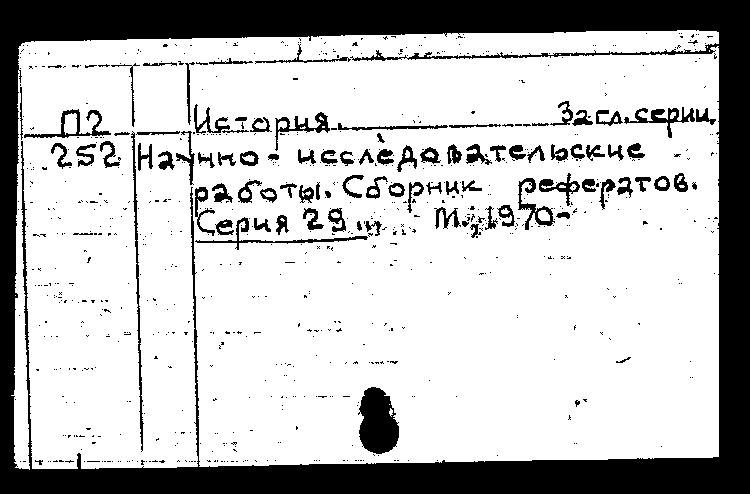 П2 История. Загл. серии.
252 Научно-исследовательские
работы. Сборник рефератов.
Серия 29... М., 1970-